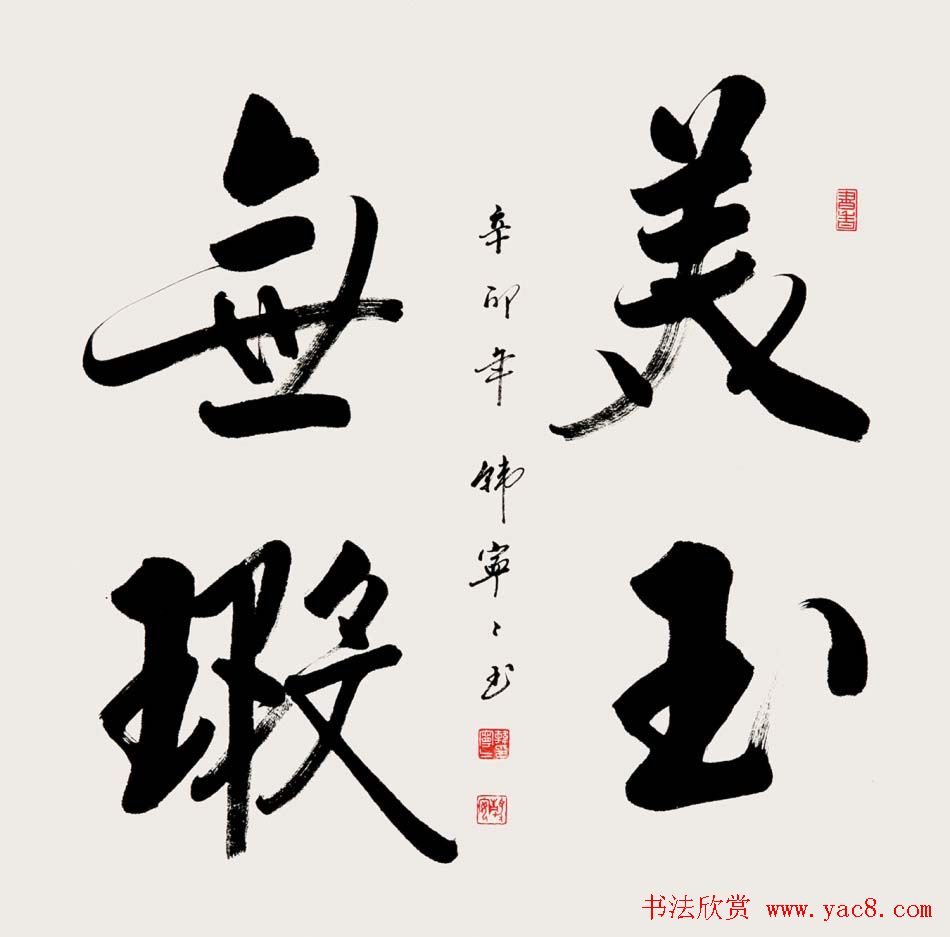 美玉
無瑕
辛卯年 韩寧〻书
書香
书法欣赏 www.yac8.com